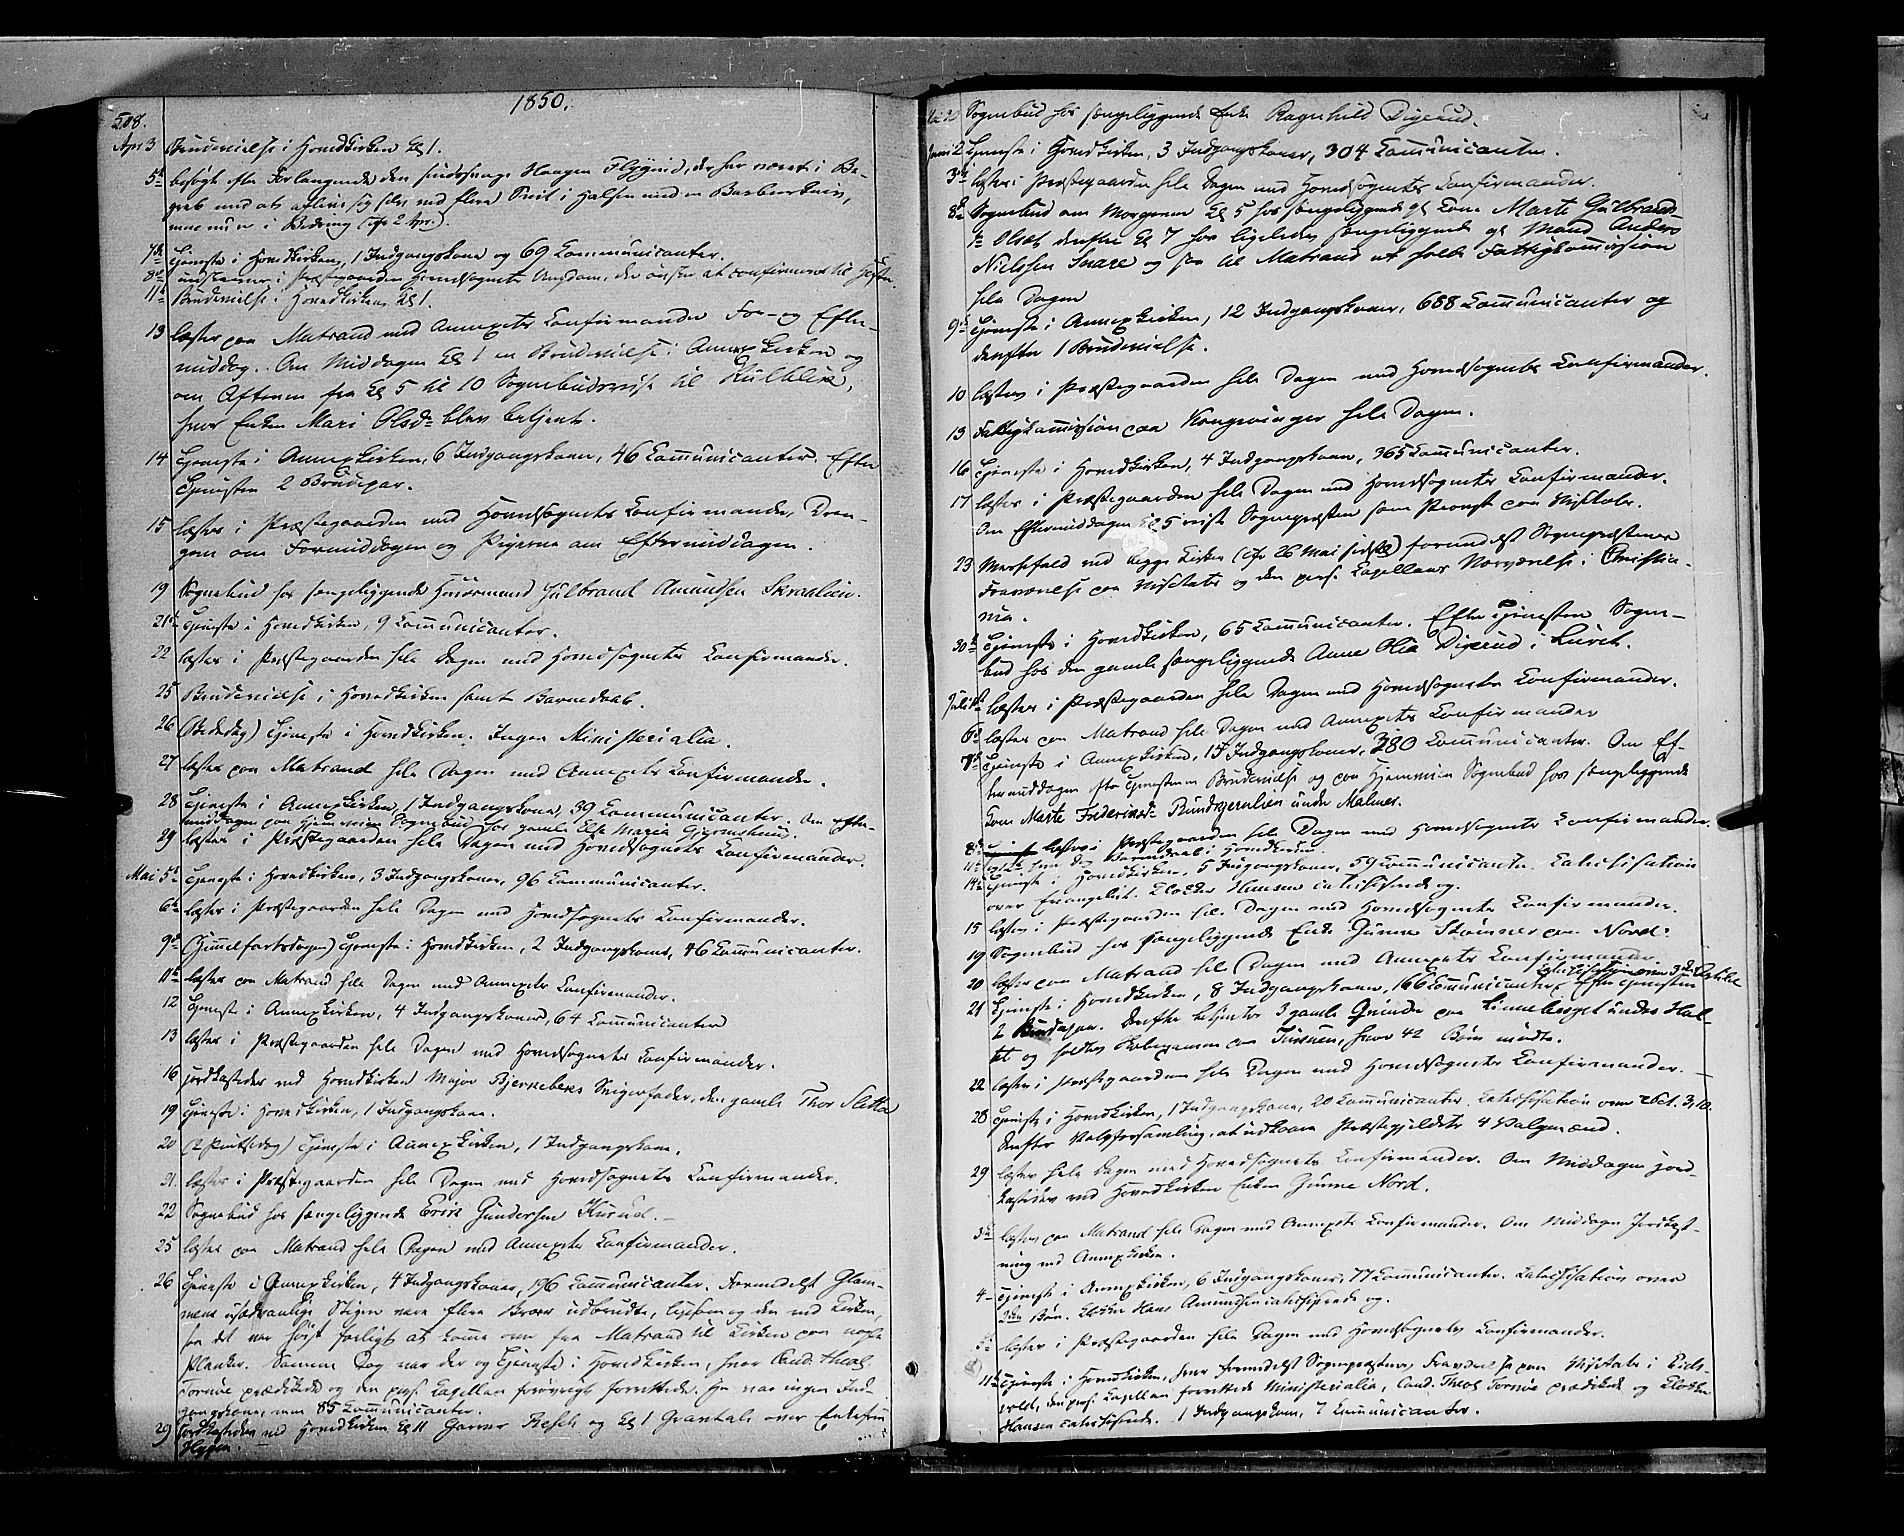 508.
1850.
Apr 3 Brudevielse i Hovedkirken Kl 1.
5te besøgt efter Forlangende den sindssvage Haagen Flygind, der har været i Be-
greb med at aflive sig selv med flere Snit i Halsen med en Barberkniv,
men nu er i Bedring (cfr 2 Apr.)
7de Tjeneste i Hovedkirken, 1 Indgangskone og 69 Communicanter.
8de i Præstegaarden Hovedsognets Ungdom, der ønsker at confirmeres til Høsten.
11te Brudevielse i Hovedkirken Kl 1.
13 læster paa Matrand med Annexets Confirmander For- og Efter-
middag. Om Middagen Kl 1 en Brudevielse i Annexkirken og
om Aftenen fra Kl 5 til 10 Sognebudsreise til Kulblik,
hvor Enken Mari Olsd. blev betjent.
14 Tjeneste i Annexkirken, 6 Indgangskoner, 46 Communicanter. Efter
Tjenesten 2 Brudepar.
15 læster i Præstegaarden med Hovedsognets Confirmander, Dren-
gene om Formiddagen og Pigerne om Eftermiddagen.
19 Sognebud hos sengeliggende Huusmand Gulbrand Amundsen Skraalien.
21de Tjeneste i Hovedkirken, 9 Communicanter.
22 læster i Præstegaarden hele Dagen med Hovedsognets Confirmander.
25 Brudevielse i Hovedkirken samt Barnedaab.
26 (Bededag) Tjeneste i Hovedkirken. Ingen Ministerialia.
27 læster paa Matrand hele Dagen med Annexets Confirmander.
28 Tjeneste i Annexkirken, 1 Indgangskone, 39 Communicanter. Om Efter-
middagen paa Hjemveien Sognebud hos gamle Else Maria
29 læster i Præstegaarden hele Dagen med Hovedsognets Confirmander.
Mai 5te Tjeneste i Hovedkirken, 3 Indgangskoner, 96 Communicanter.
6te læster i Præstegaarden hele Dagen med Hovedsognets Confirmander.
9de (Himmelfartsdagen) Tjeneste i Hovedkirken, 2 Indgangskoner, 46 Communicanter.
11te læster paa Matrand hele Dagen med Annexets Confirmander.
12 Tjeneste i Annexkirken, 4 Indgangskoner, 64 Communicanter
13 læster i Præstegaarden hele Dagen med Hovedsognets Confirmander.
16 jordkastedes ved Hovedkirken Major Bjerrebekes Svigerfader, den gamle Thor Sletta
19 Tjeneste i Hovedkirken, 1 Indgangskone.
20 (2 Pintsedag) Tjeneste i Annexkirken, 1 Indgangskone.
21. læster i Præstegaarden hele Dagen med Hovedsognets Confirmander.
22 Sognebud hos sengeliggende Erik Gundersen Kurud.
25 læster paa Matrand hele Dagen med Annexets Confirmander.
26 Tjeneste i Annexkirken, 4 Indgangskoner, 196 Communicanter. Formedelst Glom-
mens usædvanlige Stigen vare flere Broer udbrudte, ligesom og den ved Kirken,
saa det var høist farligt at komme over fra Matrand til Kirken paa nogle
Planker. Samme Dag var der og Tjeneste i Hovedkirken, hvor Cand. theol.
Tornøe prædikede og den pers. Capellan forøvrigt forrettede. Her var ingen Ind-
gangskone, men 85 Communicanter.
29 jordkastedes ved Hovedkirken Kl 11 Garver Resch og Kl 1 Gravtale over Enkefru
Hygen.
Sognebud hos sengeliggende Enke Ragnhild Digerud.
Juni 2 Tjeneste i Hovedkirken, 3 Indgangskoner, 304 Communicanter.
3de læster i Præstegaarden hele Dagen med Hovedsognets Confirmander.
8de Sognebud om Morgenen Kl 5 hos sengeliggende gl Kone Marte Gulbrands-
dr Olset, derefter Kl 7 hos ligeledes sengeliggende gl Mand Anders
Nielssen Snare og saa til Matrand at holde Fattigkommission
hele Dagen
9de Tjeneste i Annexkirken, 12 Indgangskoner, 688 Communicanter og
derefter 1 Brudevielse.
10 læster i Præstegaarden hele Dagen med Hovedsognets Confirmander.
13 Fattigkommission paa Kongsvinger hele Dagen.
16 Tjeneste i Hovedkirken, 4 Indgangskoner, 365 Communicanter.
17 læster i Præstegaarden hele Dagen med Hovedsognets Confirmander.
Om Eftermiddagen Kl 5 reiste Sognepræsten som Provst paa Visitats.
23 Messefald ved begge Kirker (cfr 26 Mai sidste) formedelst Sognepræstens
Fraværelse paa Visitats og den pers. Capellans Nærværelse i Christia-
nia.
30te Tjeneste i Hovedkirken, 65 Communicanter. Efter Tjenesten Sogne-
bud hos den gamle sengeliggende Anne Olia Digerud i Luret.
Juli 1ste læster i Præstegaarden hele Dagen med Hovedsognets Confirmander.
6te læster paa Matrand hele Dagen med Annexets Confirmander
7de Tjeneste i Annexkirken, 15 Indgangskoner, 380 Communicanter. Om Ef-
termiddagen efter Tjenesten Brudevielse og paa Hjemveien Sognebud hos sengeliggende
Kone Marte Frederiksdr under Malmer.
8de læster i Præstegaarden hele Dagen med Hovedsognets Confirmander.
11te Barnedaab i Hovedkirken.
14de Tjeneste i Hovedkirken, 5 Indgangskoner, 59 Communicanter. Catechisation
over Evangeliet. Klokker Hansen catechiserede og.
15 læster i Præstegaarden hele Dagen med Hovedsognets Confirmander.
19 Sognebud hos sengeliggende Enke Gunnor paa Nord.
20 læster paa Matrand hele Dagen med Annexets Confirmander
Catechisation over 3die Artikel
21 Tjeneste i Hovedkirken, 8 Indgangskoner, 166 Communicanter. Efter Tjenesten
2 Brudepar. Derefter betjentes 3 gamle Qvinder paa Linneberget under Hol-
tet og holdtes paa, hvor 42 Børn mødte.
22 læster i Præstegaarden hele Dagen med Hovedsognets Confirmander.
28 Tjeneste i Hovedkirken, 1 Indgangskone, 20 Communicanter. Catechisation over 2 Cor. 3, 10.
derefter Valgforsamling, at udkaare Præstegjeldets 4 Valgmænd.
29 læster hele Dagen med Hovedsognets Confirmander. Om Middagen jord-
kastedes ved Hovedkirken Enken Gunnor Nord.
3de læster paa Matrand hele Dagen med Annexets Confirmander. Om Middagen Jordkast-
ning ved Annexkirken.
4- Tjeneste i Annexkirken, 6 Indgangskoner, 77 Communicanter. Catechisation over
3die Bøn. Klokker Hans Amundsen catechiserede og.
5te læster i Præstegaarden hele Dagen med Hovedsognets Confirmander.
11te Tjeneste i Hovedkirken, hvor formedelst Sognepræstens Fraværelse paa Visitats i Eids-
vold, den pers. Capellan forrettede Ministerialia, Cand. Theol Tornøe prædikede og Klokker
Hansen catechiserede. 1 Indgangskone, 7 Communicanter.